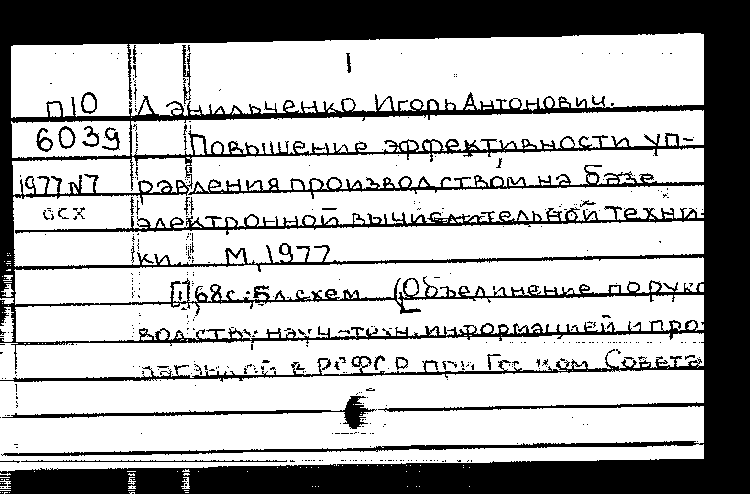 I
П10 Данильченко, Игорь Антонович.
6039 Повышение эффективности уп-
1977 N7 равления производством на базе
осх электронной вычислительной техни-
ки. М., 1977.
[1], 68с.; Бл. схем. (Объединение по руко
водству науч.-техн. информацией и про-
пагандой в РСФСР при Гос ком. Совета